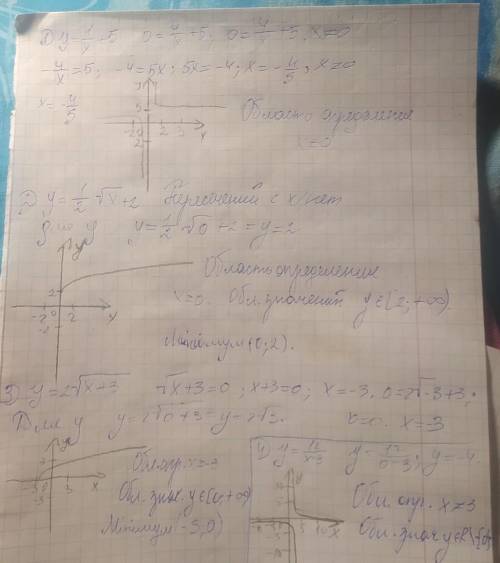 1) y=4/x+5 0=4/x+5; 0=4/x+5, x≠0
-4/x=5; -4=5x; 5x=-4; x=-4/5; x≠0
x=-4/5
y
5
-2 0 2 3 x
2
Область определения
x≠0
2) y=1/2 √x+2 Пересечений с x нет
Для y y=1/2 √0+2=y=2
y
2
-2 0 2 x
Область определения
x≥0. Обл. значений y∈[2;+∞).
Минимум (0;2).
3) y=2√x+3 √x+3=0; x+3=0; x=-3. 0=2√-3+3;
Для y y=2√0+3=y=2√3. x=3
y
-3 0 3 x
Обл. опр. x≥-3
Обл. знач. y∈[0;+∞)
Минимум (-3,0)
4) y=12/x-3 y=12/0-3; y=-4.
y
5 10 x
Обл. опр. x≠3
Обл. знач y∈R\{0}